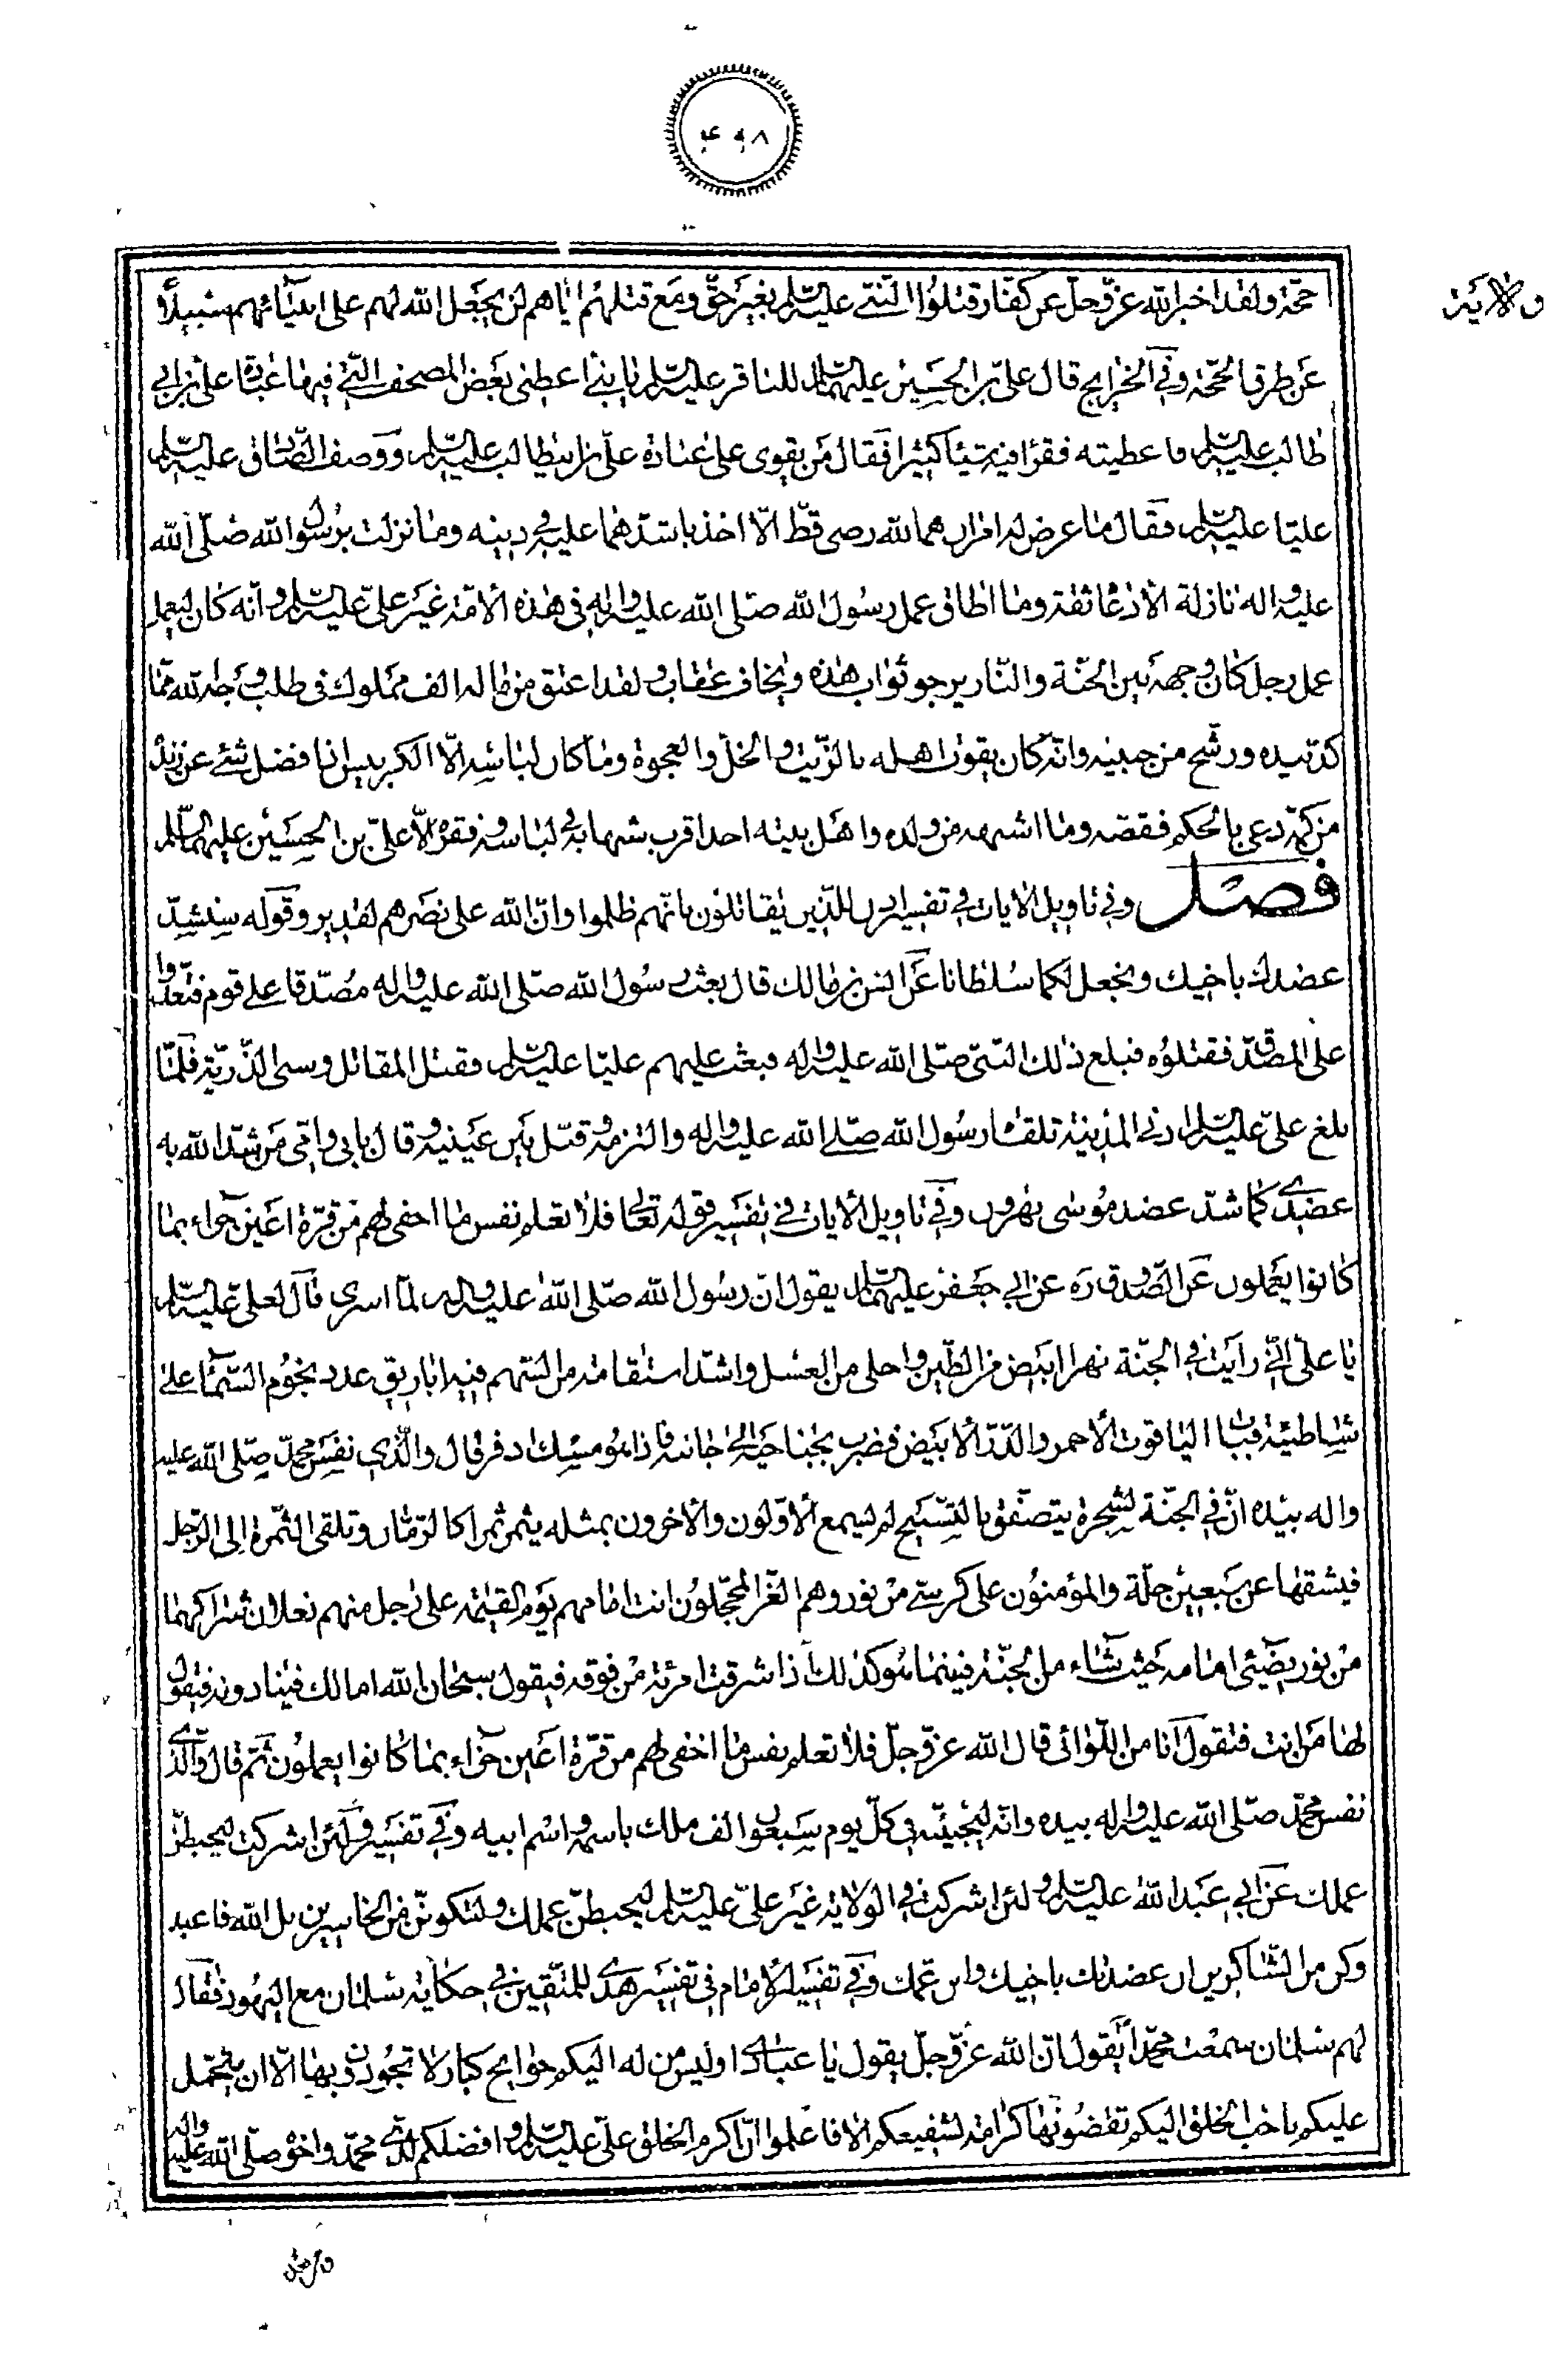 ۴۹۸
ولاية
حجّة ولقد اخبر الله عزّ وجلّ عن كفّار قتلوا النبيّ عليه السّلم بغير حقّ ومع قتلهم ايّاهم لن يجعل الله لهم على انبيائهم سبيلاً
عن طرق الحجّة وفي الخرايج قال عليّ بن الحسين عليهما السّلم للباقر عليه السّلم يا بنيّ اعطني بعض المصحف التي فيها عبادة عليّ بن ابي
طالب عليه السّلم فاعطيته فقرا فيه شيئا كثيرا فقال من يقوى على عبادة عليّ بن ابيطالب عليه السّلم ووصف الصّادق عليه السّلم
عليّا عليه السّلم فقال ما عرض له امران هما لله رضى قطّ الّا اخذ باشدّهما عليه في دينه وما نزلت برسول الله صلّى الله
عليه واله نازلة الّا دعا ثقة وما اطاق عمل رسول الله صلّى الله عليه واله في هذه الامّة غير عليّ عليه السّلم وانّه كان ليعمل
عمل رجل كان وجهه بين الجنّة والنّار يرجو ثواب هذه ويخاف عقاب ولقد اعتق من ماله الف مملوك في طلب وجه الله ممّا
كدّ بيده ورشح من جبينه وانّه كان يقوت اهله بالزّيت والخلّ والعجوة وما كان لباسه الّا الكرابيس اذا فضل شئ عن يده
من كمّه دعى بالحكم فقصّه وما اشبهه من ولده واهل بيته احد اقرب شبها به في لباسه وفقهه الّا عليّ بن الحسين عليهما السّلم
فصل وفي تاويل الايات في تفسير اذن للذين يقاتلون بانّهم ظلموا وانّ الله على نصرهم لقدير وقوله سنشدّ
عضدك باخيك ونجعل لكما سلطانا عن انس بن مالك قال بعث رسول الله صلّى الله عليه واله مصدّقا على قوم فتعدّوا
على المصدّق فقتلوه فبلغ ذلك النبيّ صلّى الله عليه واله فبعث عليهم عليّا عليه السّلم فقتل المقاتل وسبى الذّريّة فلمّا
بلغ عليّ عليه السّلم ادنى المدينة تلقّاه رسول الله صلّى الله عليه واله والتزمه وقبّل بين عينيه وقال بابي وامّي من شدّ الله به
عضدي كما شدّ عضد موسى بهرون وفي تاويل الايات في تفسير قوله تعالى فلا تعلم نفس ما اخفى لهم من قرّة اعين جزاء بما
كانوا يعملون عن الصّدوق ره عن ابي جعفر عليهما السّلم يقول انّ رسول الله صلّى الله عليه واله لمّا اسرى قال لعليّ عليه السّلم
يا عليّ انّي رايت في الجنّة نهرا ابيض من اللبن واحلى من العسل واشدّ استقامة من السّهم فيه اباريق عدد نجوم السّماء على
شاطئه قباب الياقوت الاحمر والدّرّ الابيض فضرب بجناحيه الى جانبه فاذا هو مسك اذفر قال والّذي نفس محمّد صلّى الله عليه
واله بيده انّ في الجنّة لشجرة يتصفّق بالتسبيح لم يسمع الاوّلون والاخرون بمثله يثمر ثمرا كالرّمّان وتلقى الثّمرة الى الرّجل
فيشقها عن سبعين حلّة والمؤمنون على كرسيّ من نور وهم الغرّ المحجّلون انت امامهم يوم القيمة على رجل منهم نعلان شراكهما
من نور يضيئ امامه حيث شاء من الجنّة فبينما هو كذلك اذا شرقت امرئة من فوقه فيقول سبحان الله اما لك فينا دولة فيقول
لها من انت فتقول انا من اللّواتي قال الله عزّ وجلّ فلا تعلم نفس ما اخفى لهم من قرّة اعين جزاء بما كانوا يعملون ثمّ قال والّذي
نفس محمّد صلّى الله عليه واله بيده وانّه ليجيئه في كلّ يوم سبعون الف ملك باسمه واسم ابيه وفي تفسير ولئن اشركت ليحبطنّ
عملك عن ابي عبد الله عليه السّلم ولئن اشركت في الولاية غير عليّ عليه السّلم ليحبطنّ عملك ولتكوننّ من الخاسرين بل الله فاعبد
وكن من الشّاكرين ان عضدتك باخيك وابن عمّك وفي تفسير الامام في تفسير هدى للمتّقين في حكاية سلمان مع اليهود فقال
لهم سلمان سمعت محمّدا يقول انّ الله عزّ وجلّ يقول يا عبادي اوليس من له اليكم حوايج كبار لا تجودون بها الّا ان يتحمّل
عليكم باحبّ الخلق اليكم تقضونها كرامة لشفيعكم الا فاعلموا انّ اكرم الخلق عليّ عليه السّلم وافضلكم لديّ محمّد واخوه صلّى الله عليه واله